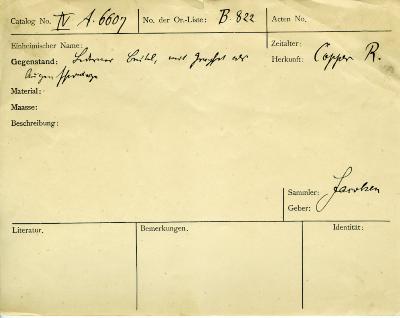 Catalog No. IV A. 6607 No. der Or.-Liste: B. 822 Acten No.
Einheimischer Name: Zeitalter:
Gegenstand: Lederner Beutel, mit Herkunft: Copper R.
Augen
Material:
Maasse:
Beschreibung:
Sammler: Jacobsen
Geber:
Literatur. Bemerkungen. Identität: